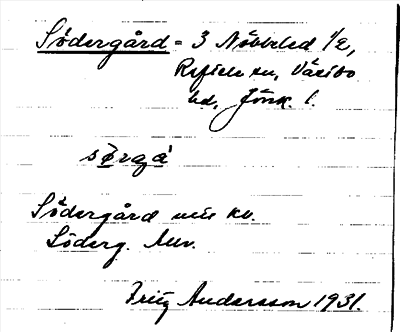 Södergård = 3 Nöbbeled 1/2,
Reftele sn, Västbo
hd, Jönk. l.
sørgȧ
Södergård
Söderg.
Fritz Andersson 1931.